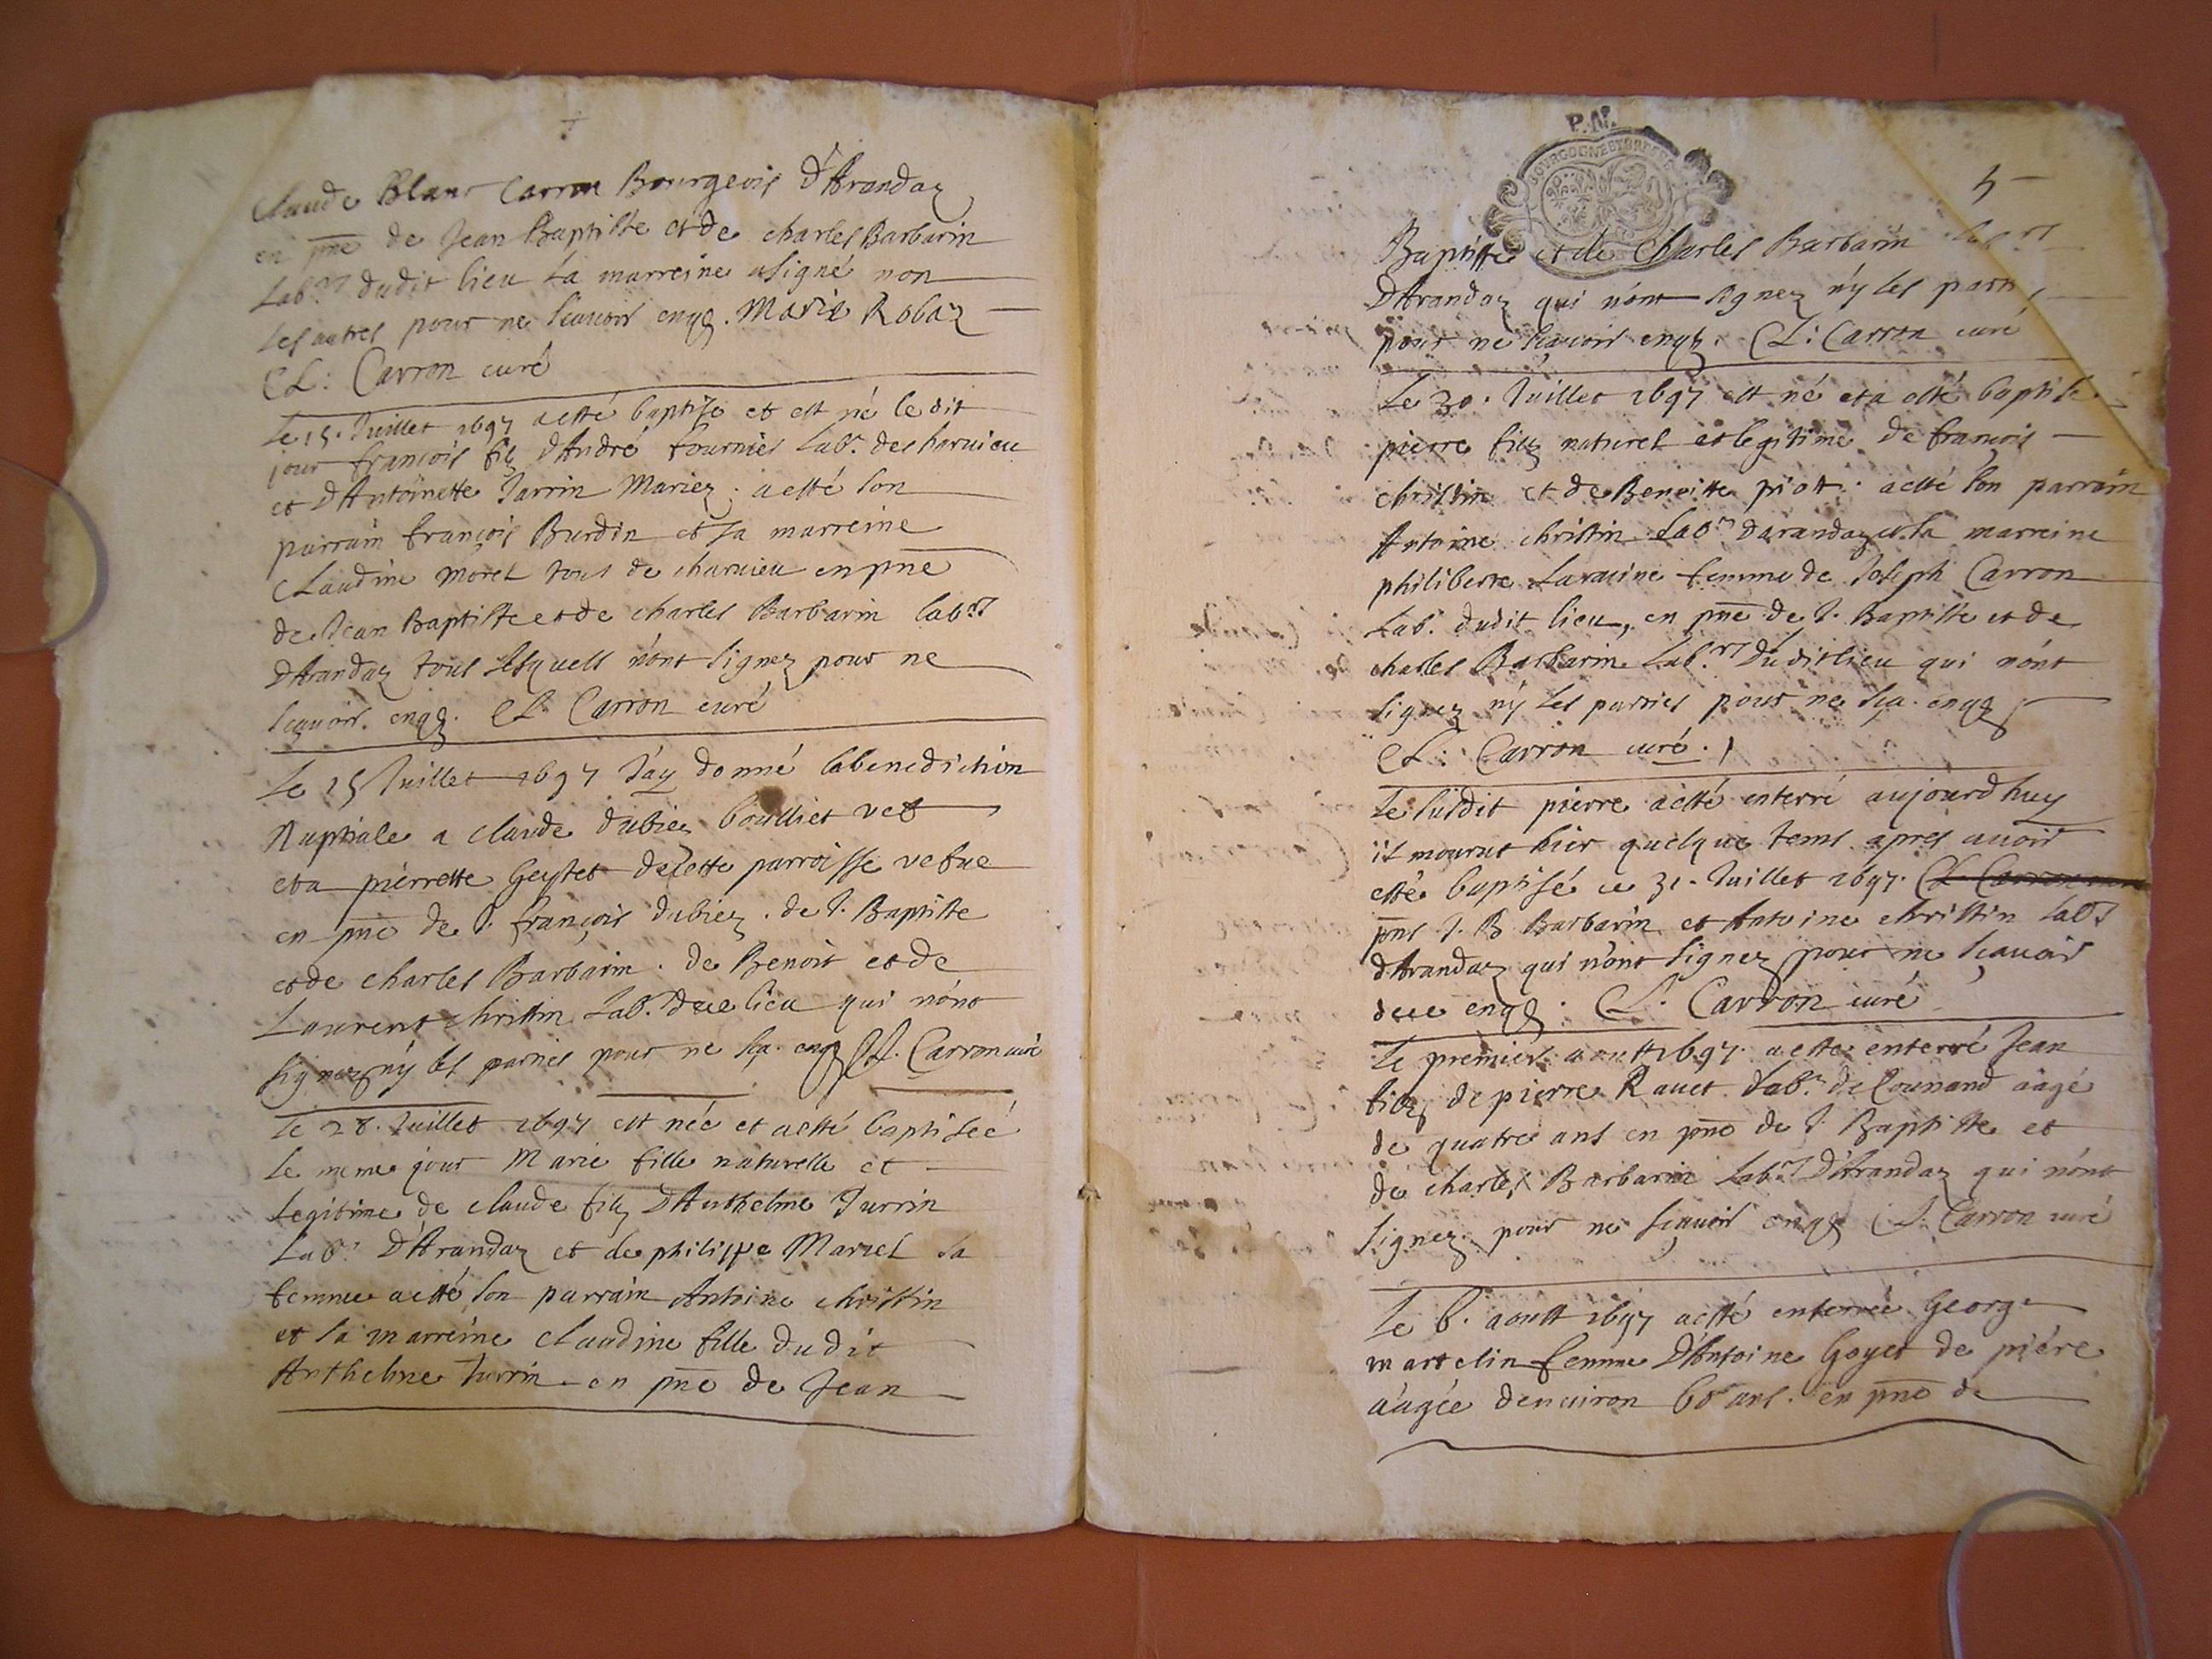 Claude Blanc Carron Bourgeois d'Arandaz
en pn̄e de Jean Baptiste et de charles Barbarin
Labrs dudit lieu La marreine a signé non
Les autres pour ne scauoir enqs. Marie Robaz
CL: Carron curé
Le 15. Juillet 1697 a esté baptise et est né le dit
jour francois filz d'André fournier Labr. de charuieu
et d'Antoinette Jarrin Mariez. a esté son
parrain francois Burdin et sa marreine
Claudine Morel tous de charuieu en pn̄e
de Jean Baptiste et de charles Barbarin labrs
d'Arandaz tous lesquels n'ont signez pour ne
scauoir enqs. CL. Carron curé
Le 25 Juillet 1697 J'ay donné la benediction
Nuptiale a claude dubiez
et a pierrette Geytet de cette parroisse vefue
en pn̄e de J. françois dubiez. de J. Baptiste
et de charles Barbarin. de Benoit et de
Laurent christin Labr. de ce lieu qui n'ont
signez n'y les parties pour ne sça. enqs CL. Carron curé
Le 28. Juillet 1697 est née et a esté baptiseé
le meme jour Marie fille naturelle et
Legitime de claude filz d'Anthelme Jarrin
Labr. D'Arandaz et de philippe Marcel sa
femme a esté son parrain Antoine christin
et sa marreine claudine fille du dit
Anthelme Jarrin en pn̄e de Jean
P.N.
BOURGOGNE ET BRESSE
5
Baptiste et de Charles Barbarin Labrs
D'Arandaz qui n'ont signez n'y les part
pour ne scauoir enqs. CL: Carron curé
Le 30. Juillet 1697 est né et a esté baptisé
pierre filz naturel et legitime de francois
christin et de Benoitte piott. a esté son parrain
Antoine christin Labr d'arandaz et la marreine
philiberte Lavaine femme de Joseph Carron
Labr. dudit lieu, en pn̄e de J. Baptiste et de
charles Barbarin Labrs dudit lieu qui n'ont
signez n'y les parties pour ne sça. enqs
CL: Carron curé.
Le susdit pierre a esté enterré aujourdhuy
il mourut hier quelque tems apres auoir
esté baptisé ce 31. Juillet 1697. CL Carron curé
pn̄s J. B Barbarin et Antoine christin Labrs
d'Arandaz qui n'ont signez pour ne scauoir
de ce enqs. CL. Carron curé
Le premier aoust 1697. a esté enterré Jean
filz de pierre Rauet Labr. de Counand aagé
de quatre ans en pn̄e de J. Baptiste et
de charles Barbarin Labrs D'Arandaz qui n'ont
signez pour ne scauoir enqs CL. Carron curé
Le 6. aoust 1697 a esté enterrée George
martelin femme D'Antoine Goyet de piére
aágée denuiron 60 ans. en pn̄e de